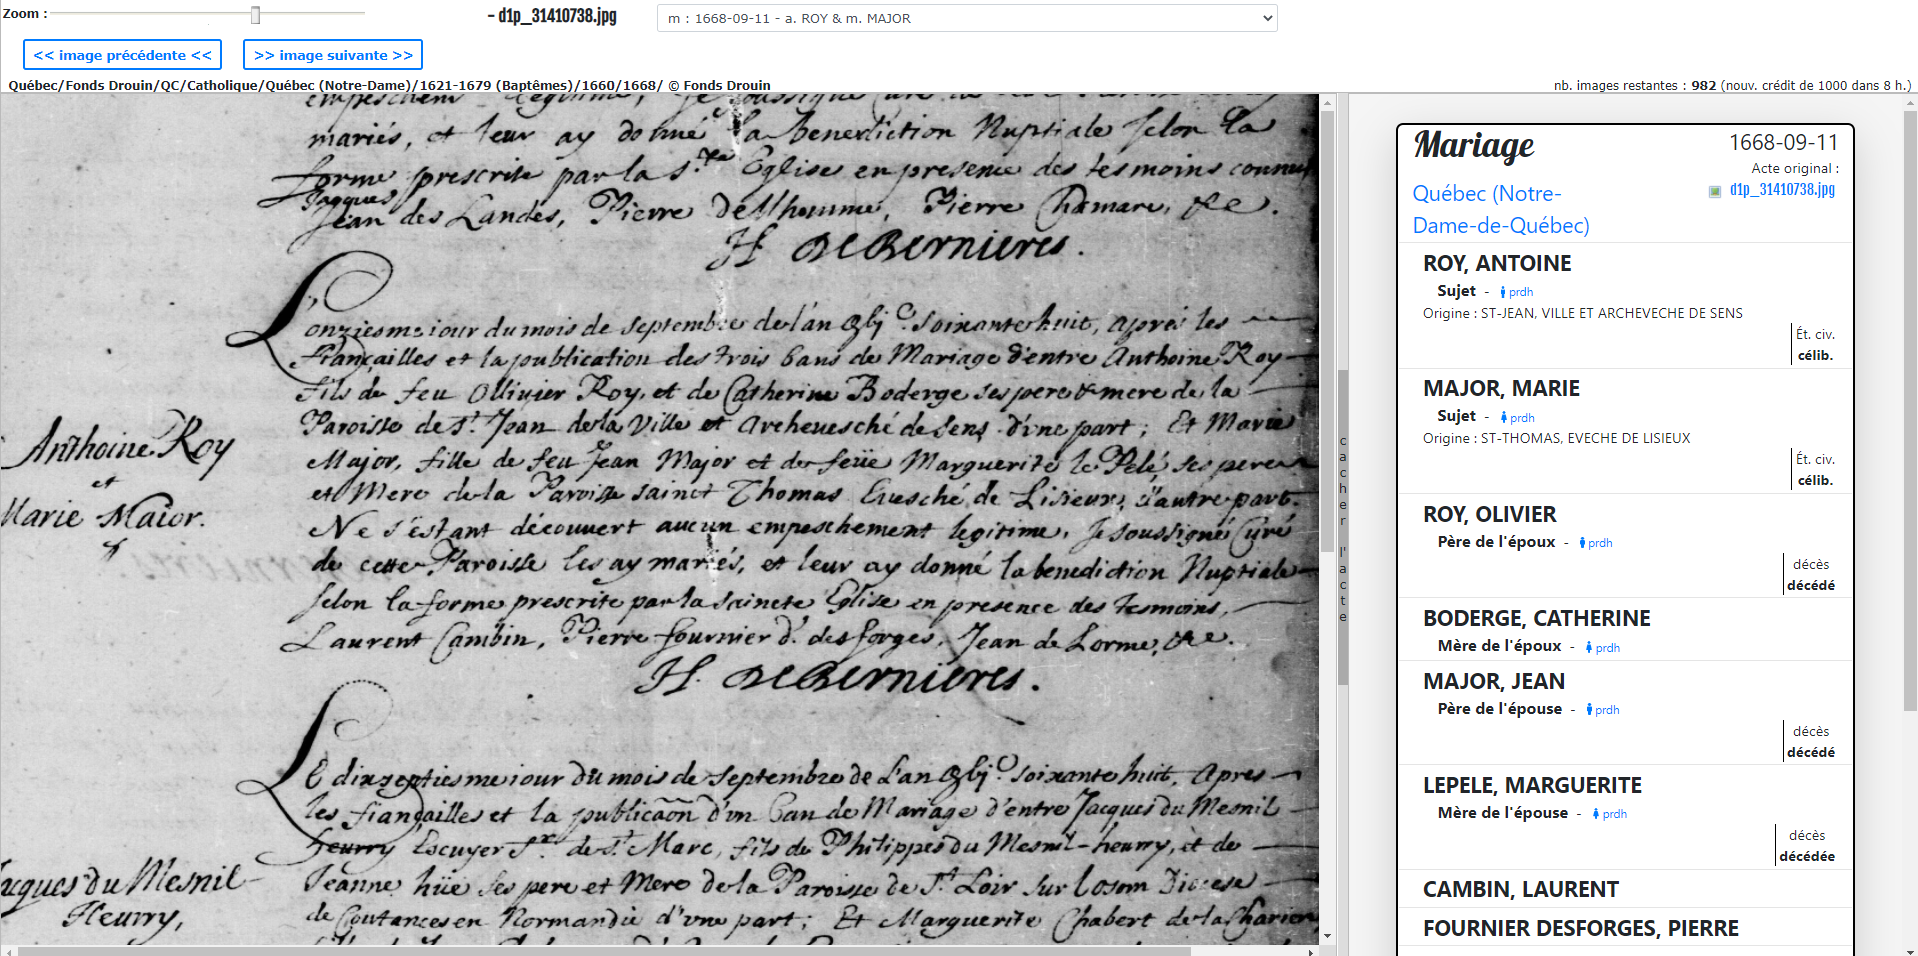 Zoom :
– d1p_31410738.jpg
m : 1668-09-11 - a. ROY & m. MAJOR
<< image précédente <<
>> image suivante >>
Québec/Fonds Drouin/QC/Catholique/Québec (Notre-Dame)/1621-1679 (Baptêmes)/1660/1668/ © Fonds Drouin
nb. images restantes : 982 (nouv. crédit de 1000 dans 8 h.)
mariés, et leur ay donné la benediction Nuptiale selon la
forme prescrite par la Ste Eglise en presence des tesmoins connus
Jacques
Jean des Landes, Pierre , Pierre Chamare, &c.
H. DeBernieres.
L'onziesme iour du mois de septembre de l'an gbjc. soixante huit, après les
fiançailles et la publication des trois bans de Mariage d'entre Anthoine Roy
fils de feu Ollivier Roy, et de Catherine Boderge ses pere & mere de la
Paroisse de St. Jean de la Ville et Archevesché de Sens d'vne part ; Et Marie
Major, fille de feu Jean Major et de feüe Marguerite le Pelé ses pere
et Mere de la Paroisse sainct Thomas Evesché de Lisieux, d'autre part.
Ne s'estant découvert aucun empeschement legitime, Je soussigné Curé
de cette Paroisse les ay mariés, et leur ay donné la benediction Nuptiale
selon la forme prescrite par la saincte Eglise en presence des tesmoins,
Laurent Cambin, Pierre fournier d. des forges, Jean de Lorme, &c.
H. DeBernieres.
Anthoine Roy
et
Marie Maior.
Le dixseptiesme iour du mois de septembre de l'an gbjc. soixante huit, Apres
les fiançailles et la publicaõn d'vn ban de Mariage d'entre Jacques du Mesnil
heurry Escuyer Sr. de St. Marc, fils de Philippes du Mesnil-heurry, et de
Jeanne hüe ses pere et Mere de la Paroisse de St. Loir sur Diocese
de Coutances en Normandie d'vne part ; Et Marguerite Chabert de la
Jacques du Mesnil
Heurry,
cacher l'acte
Mariage
1668-09-11
Acte original :
d1p_31410738.jpg
Québec (Notre-
Dame-de-Québec)
ROY, ANTOINE
Sujet - prdh
Origine : ST-JEAN, VILLE ET ARCHEVECHE DE SENS
Ét. civ.
célib.
MAJOR, MARIE
Sujet - prdh
Origine : ST-THOMAS, EVECHE DE LISIEUX
Ét. civ.
célib.
ROY, OLIVIER
Père de l'époux - prdh
décès
décédé
BODERGE, CATHERINE
Mère de l'époux - prdh
MAJOR, JEAN
Père de l'épouse - prdh
décès
décédé
LEPELE, MARGUERITE
Mère de l'épouse - prdh
décès
décédée
CAMBIN, LAURENT
FOURNIER DESFORGES, PIERRE